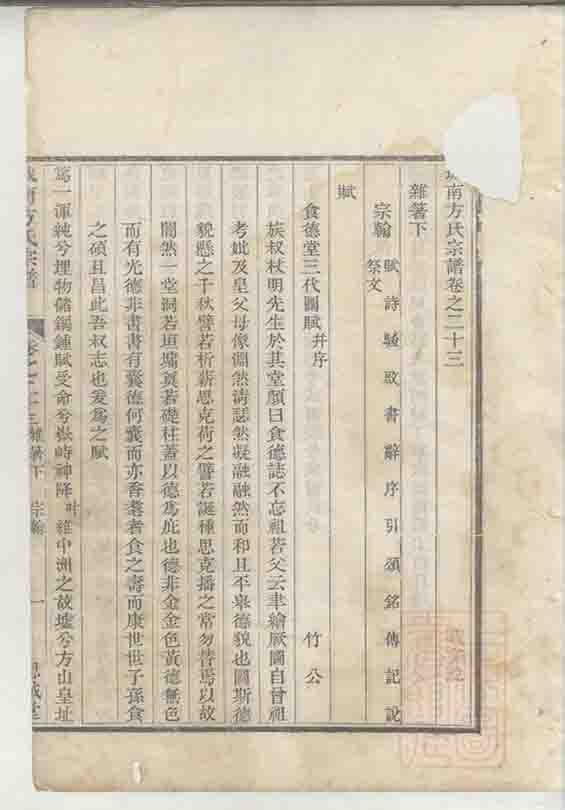 南方氏宗譜卷之二十三
雜著下
宗翰 賦詩騷啟書辭序引頌銘傳記說
祭文
賦
食德堂三代圖賦并序 竹公
族叔杖明先生於其堂顏曰食德誌不忘祖若父云聿繪厥圖自曾祖
考妣及皇父母像淵然清瑟然凝融融然而和且平皋德貌也圖斯德
貌懸之千秋譬若析薪思克荷之譬若誕種思克播之常勿替焉以故
闇然一堂洞若垣墉奠若礎柱蓋以德為庇也德非金金色黃德無色
而有光德非書書有囊德何囊而亦香耄者食之壽而康世世子孫食
之碩且昌此吾叔志也爰為之賦
篤一渾純兮埋物儲鍾賦受命兮嶽峙神降叶維中洲之故墟兮方山皇址
南方氏宗譜
雜著下 宗翰
一